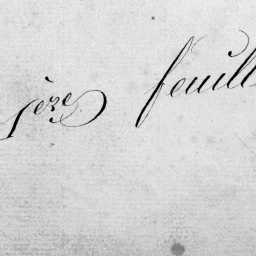 1ère feuill